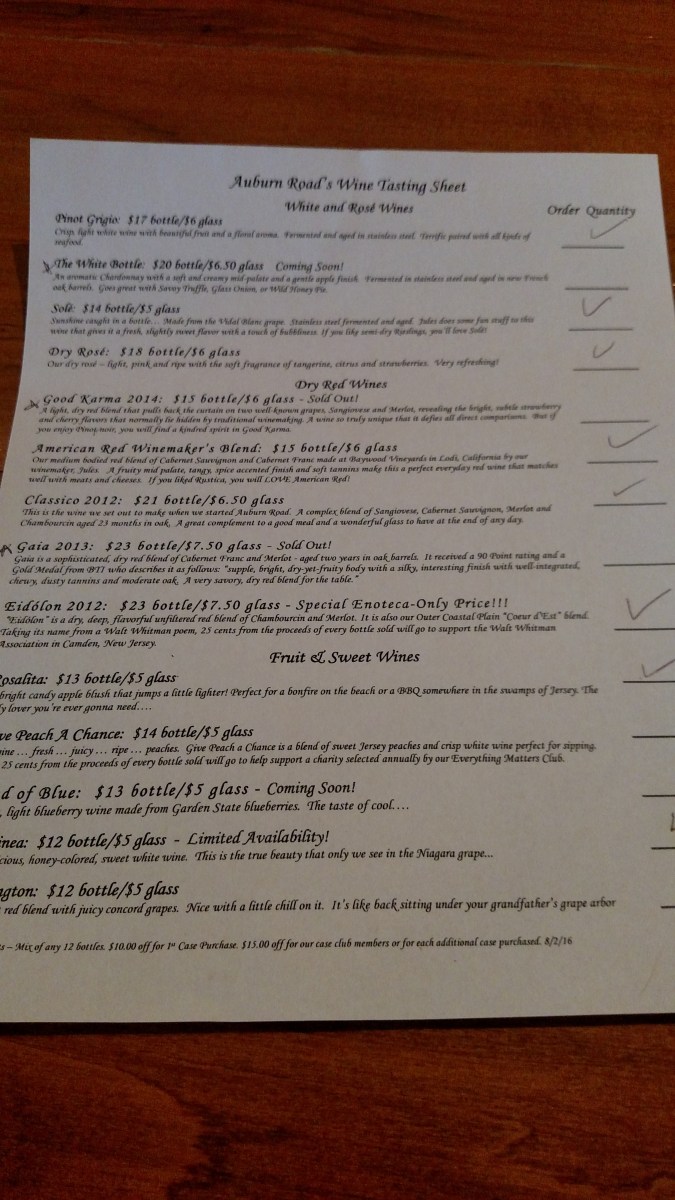 Auburn Road's Wine Tasting Sheet
White and Rosé Wines
Order Quantity
Pinot Grigio: $17 bottle/$6 glass
Crisp, light white wine with beautiful fruit and a floral aroma. Fermented and aged in stainless steel. Terrific paired with all kinds of
seafood.
The White Bottle: $20 bottle/$6.50 glass Coming Soon!
An aromatic Chardonnay with a soft and creamy mid-palate and a gentle apple finish. Fermented in stainless steel and aged in new French
oak barrels. Goes great with Savoy Truffle, Glass Onion, or Wild Honey Pie.
Solé: $14 bottle/$5 glass
Sunshine caught in a bottle... Made from the Vidal Blanc grape. Stainless steel fermented and aged. Jules does some fun stuff to this
wine that gives it a fresh, slightly sweet flavor with a touch of bubbliness. If you like semi-dry Rieslings, you'll love Solé!
Dry Rosé: $18 bottle/$6 glass
Our dry rosé – light, pink and ripe with the soft fragrance of tangerine, citrus and strawberries. Very refreshing!
Dry Red Wines
Good Karma 2014: $15 bottle/$6 glass - Sold Out!
A light, dry red blend that pulls back the curtain on two well-known grapes, Sangiovese and Merlot, revealing the bright, subtle strawberry
and cherry flavors that normally lie hidden by traditional winemaking. A wine so truly unique that it defies all direct comparisons. But if
you enjoy Pinot noir, you will find a kindred spirit in Good Karma.
American Red Winemaker's Blend: $15 bottle/$6 glass
Our medium bodied red blend of Cabernet Sauvignon and Cabernet Franc made at Baywood Vineyards in Lodi, California by our
winemaker, Jules. A fruity mid palate, tangy, spice accented finish and soft tannins make this a perfect everyday red wine that matches
well with meats and cheeses. If you liked Rustica, you will LOVE American Red!
Classico 2012: $21 bottle/$6.50 glass
This is the wine we set out to make when we started Auburn Road. A complex blend of Sangiovese, Cabernet Sauvignon, Merlot and
Chambourcin aged 23 months in oak. A great complement to a good meal and a wonderful glass to have at the end of any day.
Gaia 2013: $23 bottle/$7.50 glass - Sold Out!
Gaia is a sophisticated, dry red blend of Cabernet Franc and Merlot - aged two years in oak barrels. It received a 90 Point rating and a
Gold Medal from BTI who describes it as follows: "supple, bright, dry-yet-fruity body with a silky, interesting finish with well-integrated,
chewy, dusty tannins and moderate oak. A very savory, dry red blend for the table."
Eidólon 2012: $23 bottle/$7.50 glass - Special Enoteca-Only Price!!!
"Eidólon" is a dry, deep, flavorful unfiltered red blend of Chambourcin and Merlot. It is also our Outer Coastal Plain "Coeur d'Est" blend.
Taking its name from a Walt Whitman poem, 25 cents from the proceeds of every bottle sold will go to support the Walt Whitman
Association in Camden, New Jersey.
Fruit & Sweet Wines
osalita: $13 bottle/$5 glass
bright candy apple blush that jumps a little lighter! Perfect for a bonfire on the beach or a BBQ somewhere in the swamps of Jersey. The
y lover you're ever gonna need....
ve Peach A Chance: $14 bottle/$5 glass
ine ... fresh ... juicy ... ripe ... peaches. Give Peach a Chance is a blend of sweet Jersey peaches and crisp white wine perfect for sipping.
25 cents from the proceeds of every bottle sold will go to help support a charity selected annually by our Everything Matters Club.
d of Blue: $13 bottle/$5 glass - Coming Soon!
, light blueberry wine made from Garden State blueberries. The taste of cool....
inea: $12 bottle/$5 glass - Limited Availability!
cious, honey-colored, sweet white wine. This is the true beauty that only we see in the Niagara grape...
ngton: $12 bottle/$5 glass
red blend with juicy concord grapes. Nice with a little chill on it. It's like back sitting under your grandfather's grape arbor
s – Mix of any 12 bottles. $10.00 off for 1st Case Purchase. $15.00 off for our case club members or for each additional case purchased. 8/2/16